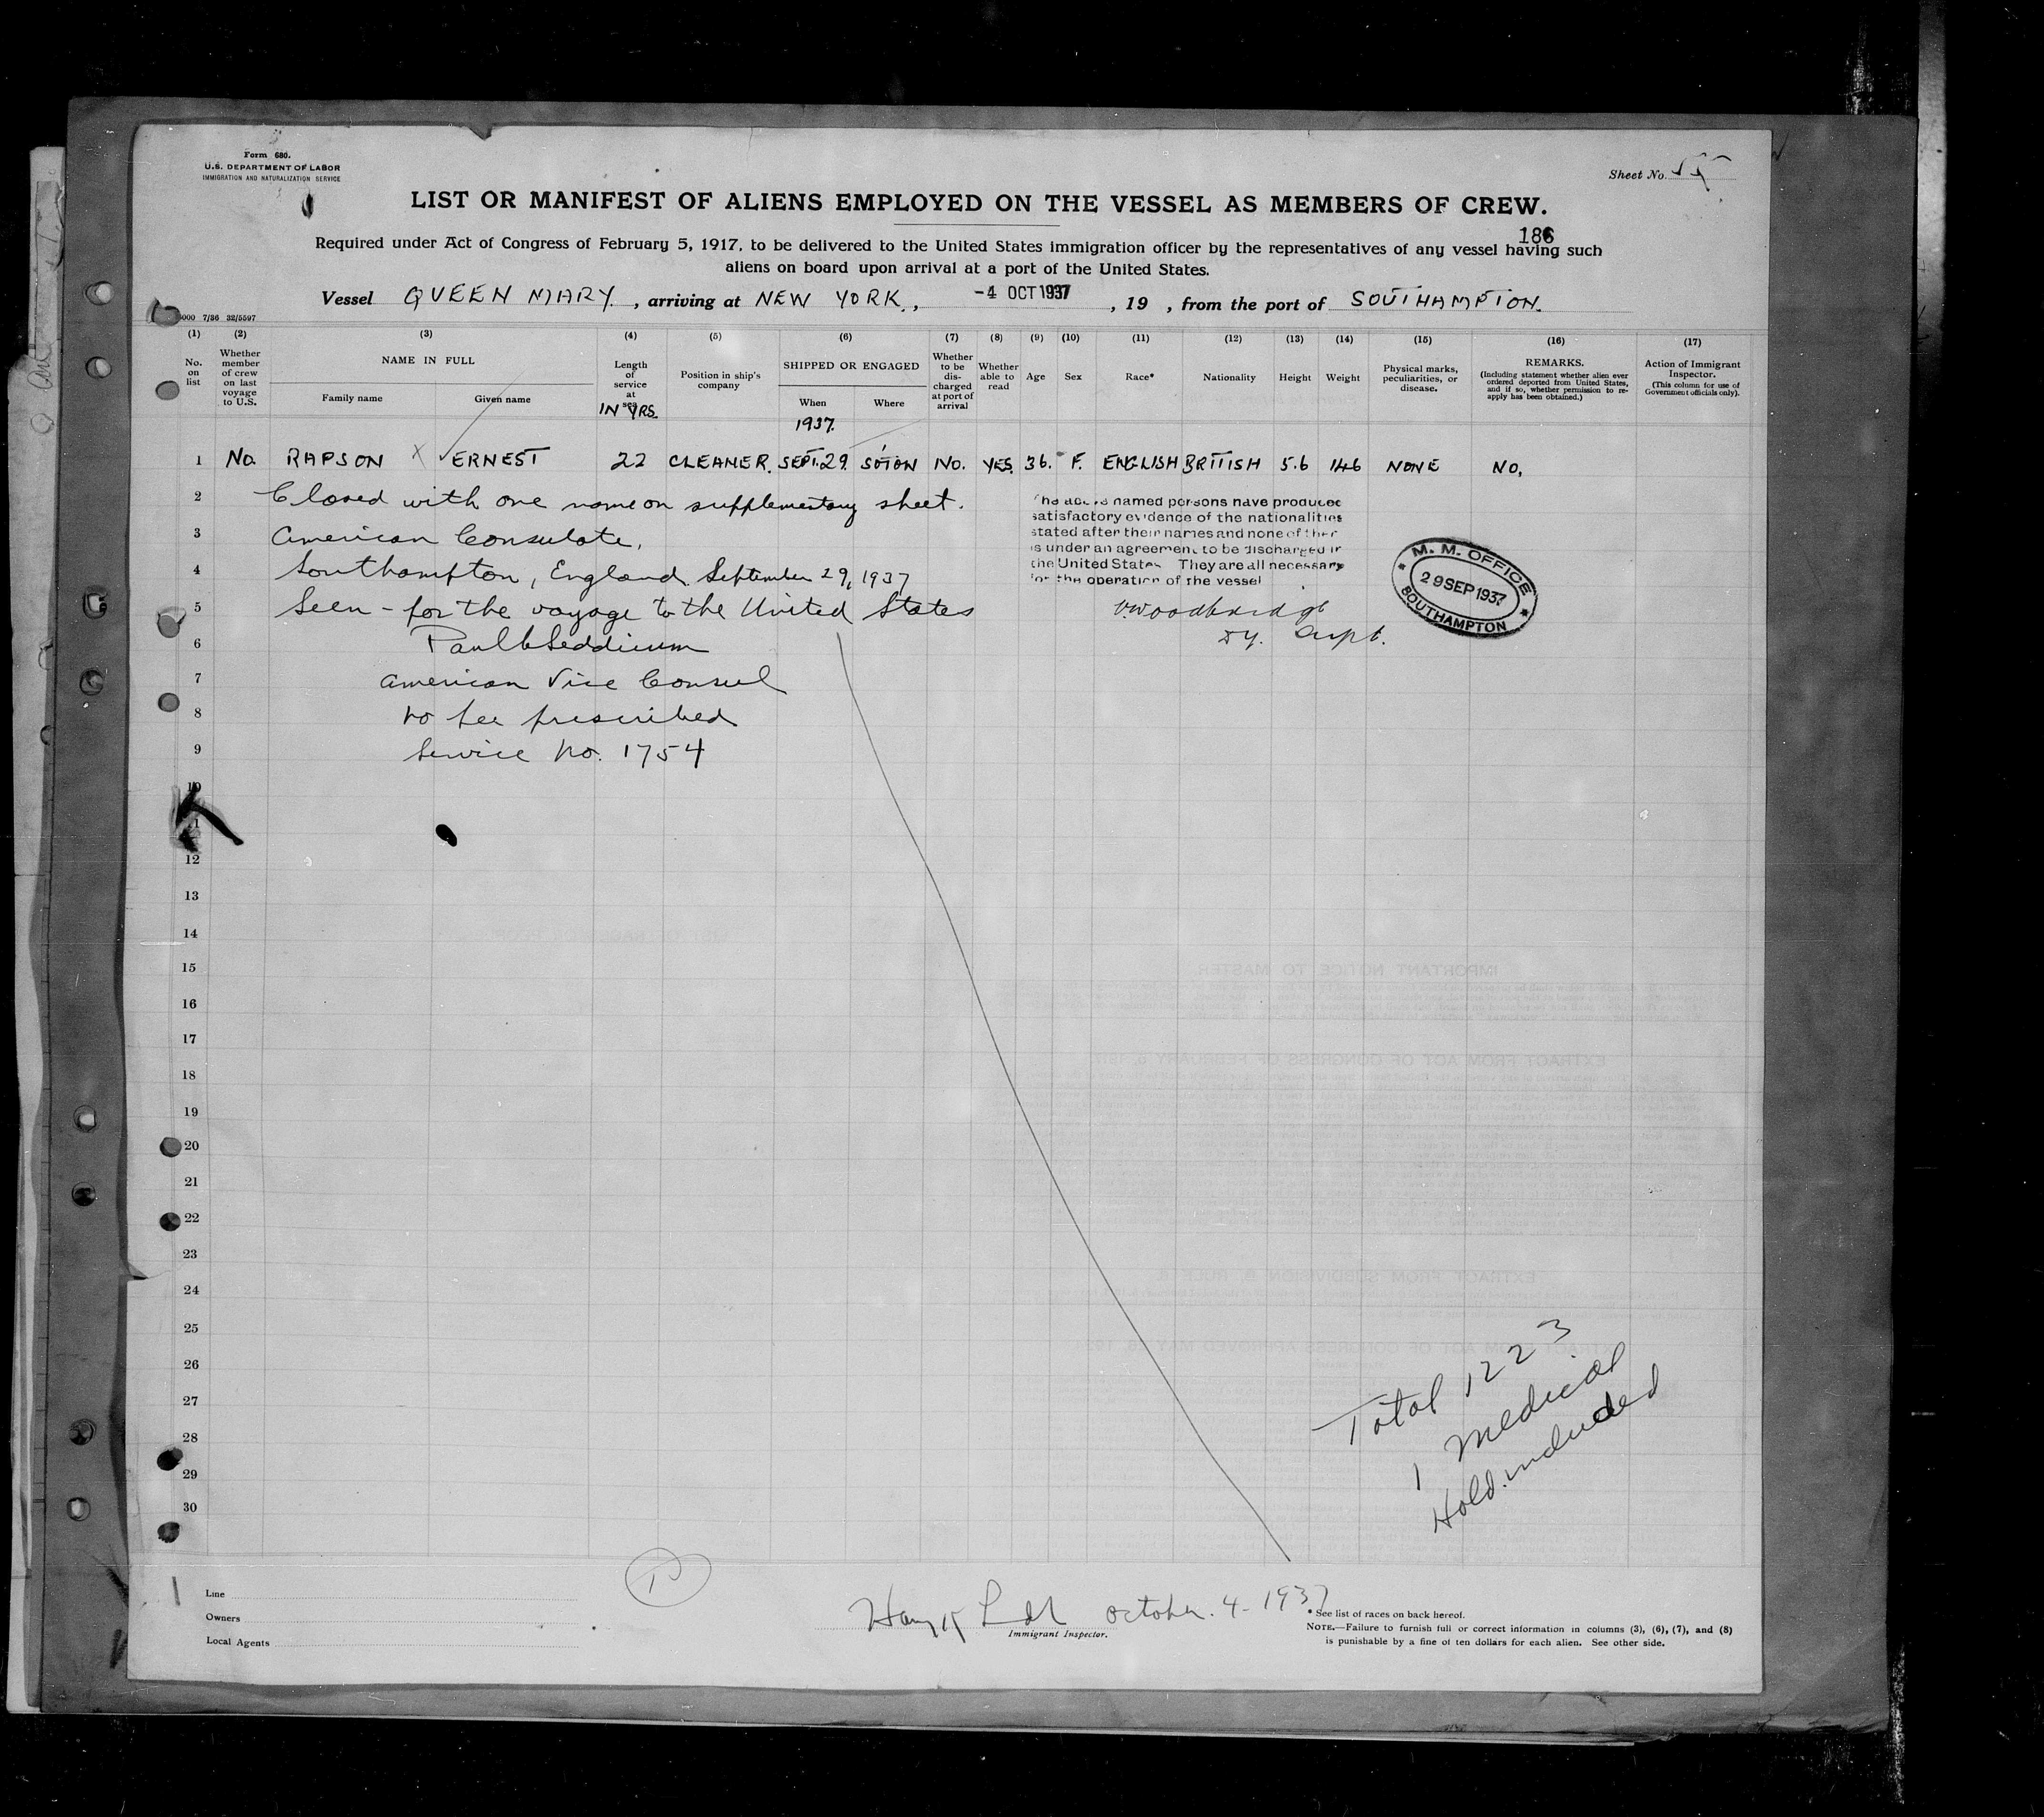 Form 680.
U.S. DEPARTMENT OF LABOR
IMMIGRATION AND NATURALIZATION SERVICE
Sheet No.
LIST OR MANIFEST OF ALIENS EMPLOYED ON THE VESSEL AS MEMBERS OF CREW.
186
Required under Act of Congress of February 5, 1917, to be delivered to the United States immigration officer by the representatives of any vessel having such
aliens on board upon arrival at a port of the United States.
Vessel QUEEN MARY, arriving at NEW YORK, -4 OCT 1937, 19 , from the port of SOUTHAMPTON.
000 7/36 32/5597
(1) (2) (3) (4) (5) (6) (7) (8) (9) (10) (11) (12) (13) (14) (15) (16) (17)
No. on list
Whether member of crew on last voyage to U.S.
NAME IN FULL
Family name Given name
Length of service at sea
IN YRS.
Position in ship's company
SHIPPED OR ENGAGED
When Where
1937.
Whether to be dis-charged at port of arrival
Whether able to read
Age
Sex
Race*
Nationality
Height
Weight
Physical marks, peculiarities, or disease.
REMARKS.
(Including statement whether alien ever ordered deported from United States, and if so, whether permission to re-apply has been obtained.)
Action of Immigrant Inspector.
(This column for use of Government officials only).
1 No. RAPSON X ERNEST 22 CLEANER. SEPT.29. SOTON NO. YES. 36. F. ENGLISH BRITISH 5.6 146 NONE NO.
2 Closed with one name on supplementary sheet.
3 American Consulate,
4 Southampton, England. September 29, 1937
5 Seen - for the voyage to the United States
6
7 American Vice Consul
8 No fee prescribed
9 Service No. 1754
The above named persons have produced
satisfactory evidence of the nationalities
stated after their names and none of them
is under an agreement to be discharged in
the United States They are all necessary
for the operation of the vessel
Woodbridge
Dy. Supt.
M. M. OFFICE
29 SEP 1937
SOUTHAMPTON
10
11
12
13
14
15
16
17
18
19
20
21
22
23
24
25
26
27
28
29
30
Total 1223
1 Medical
Hold included
Line
Owners
Local Agents
October. 4 - 1937
Immigrant Inspector.
* See list of races on back hereof.
NOTE.—Failure to furnish full or correct information in columns (3), (6), (7), and (8)
is punishable by a fine of ten dollars for each alien. See other side.